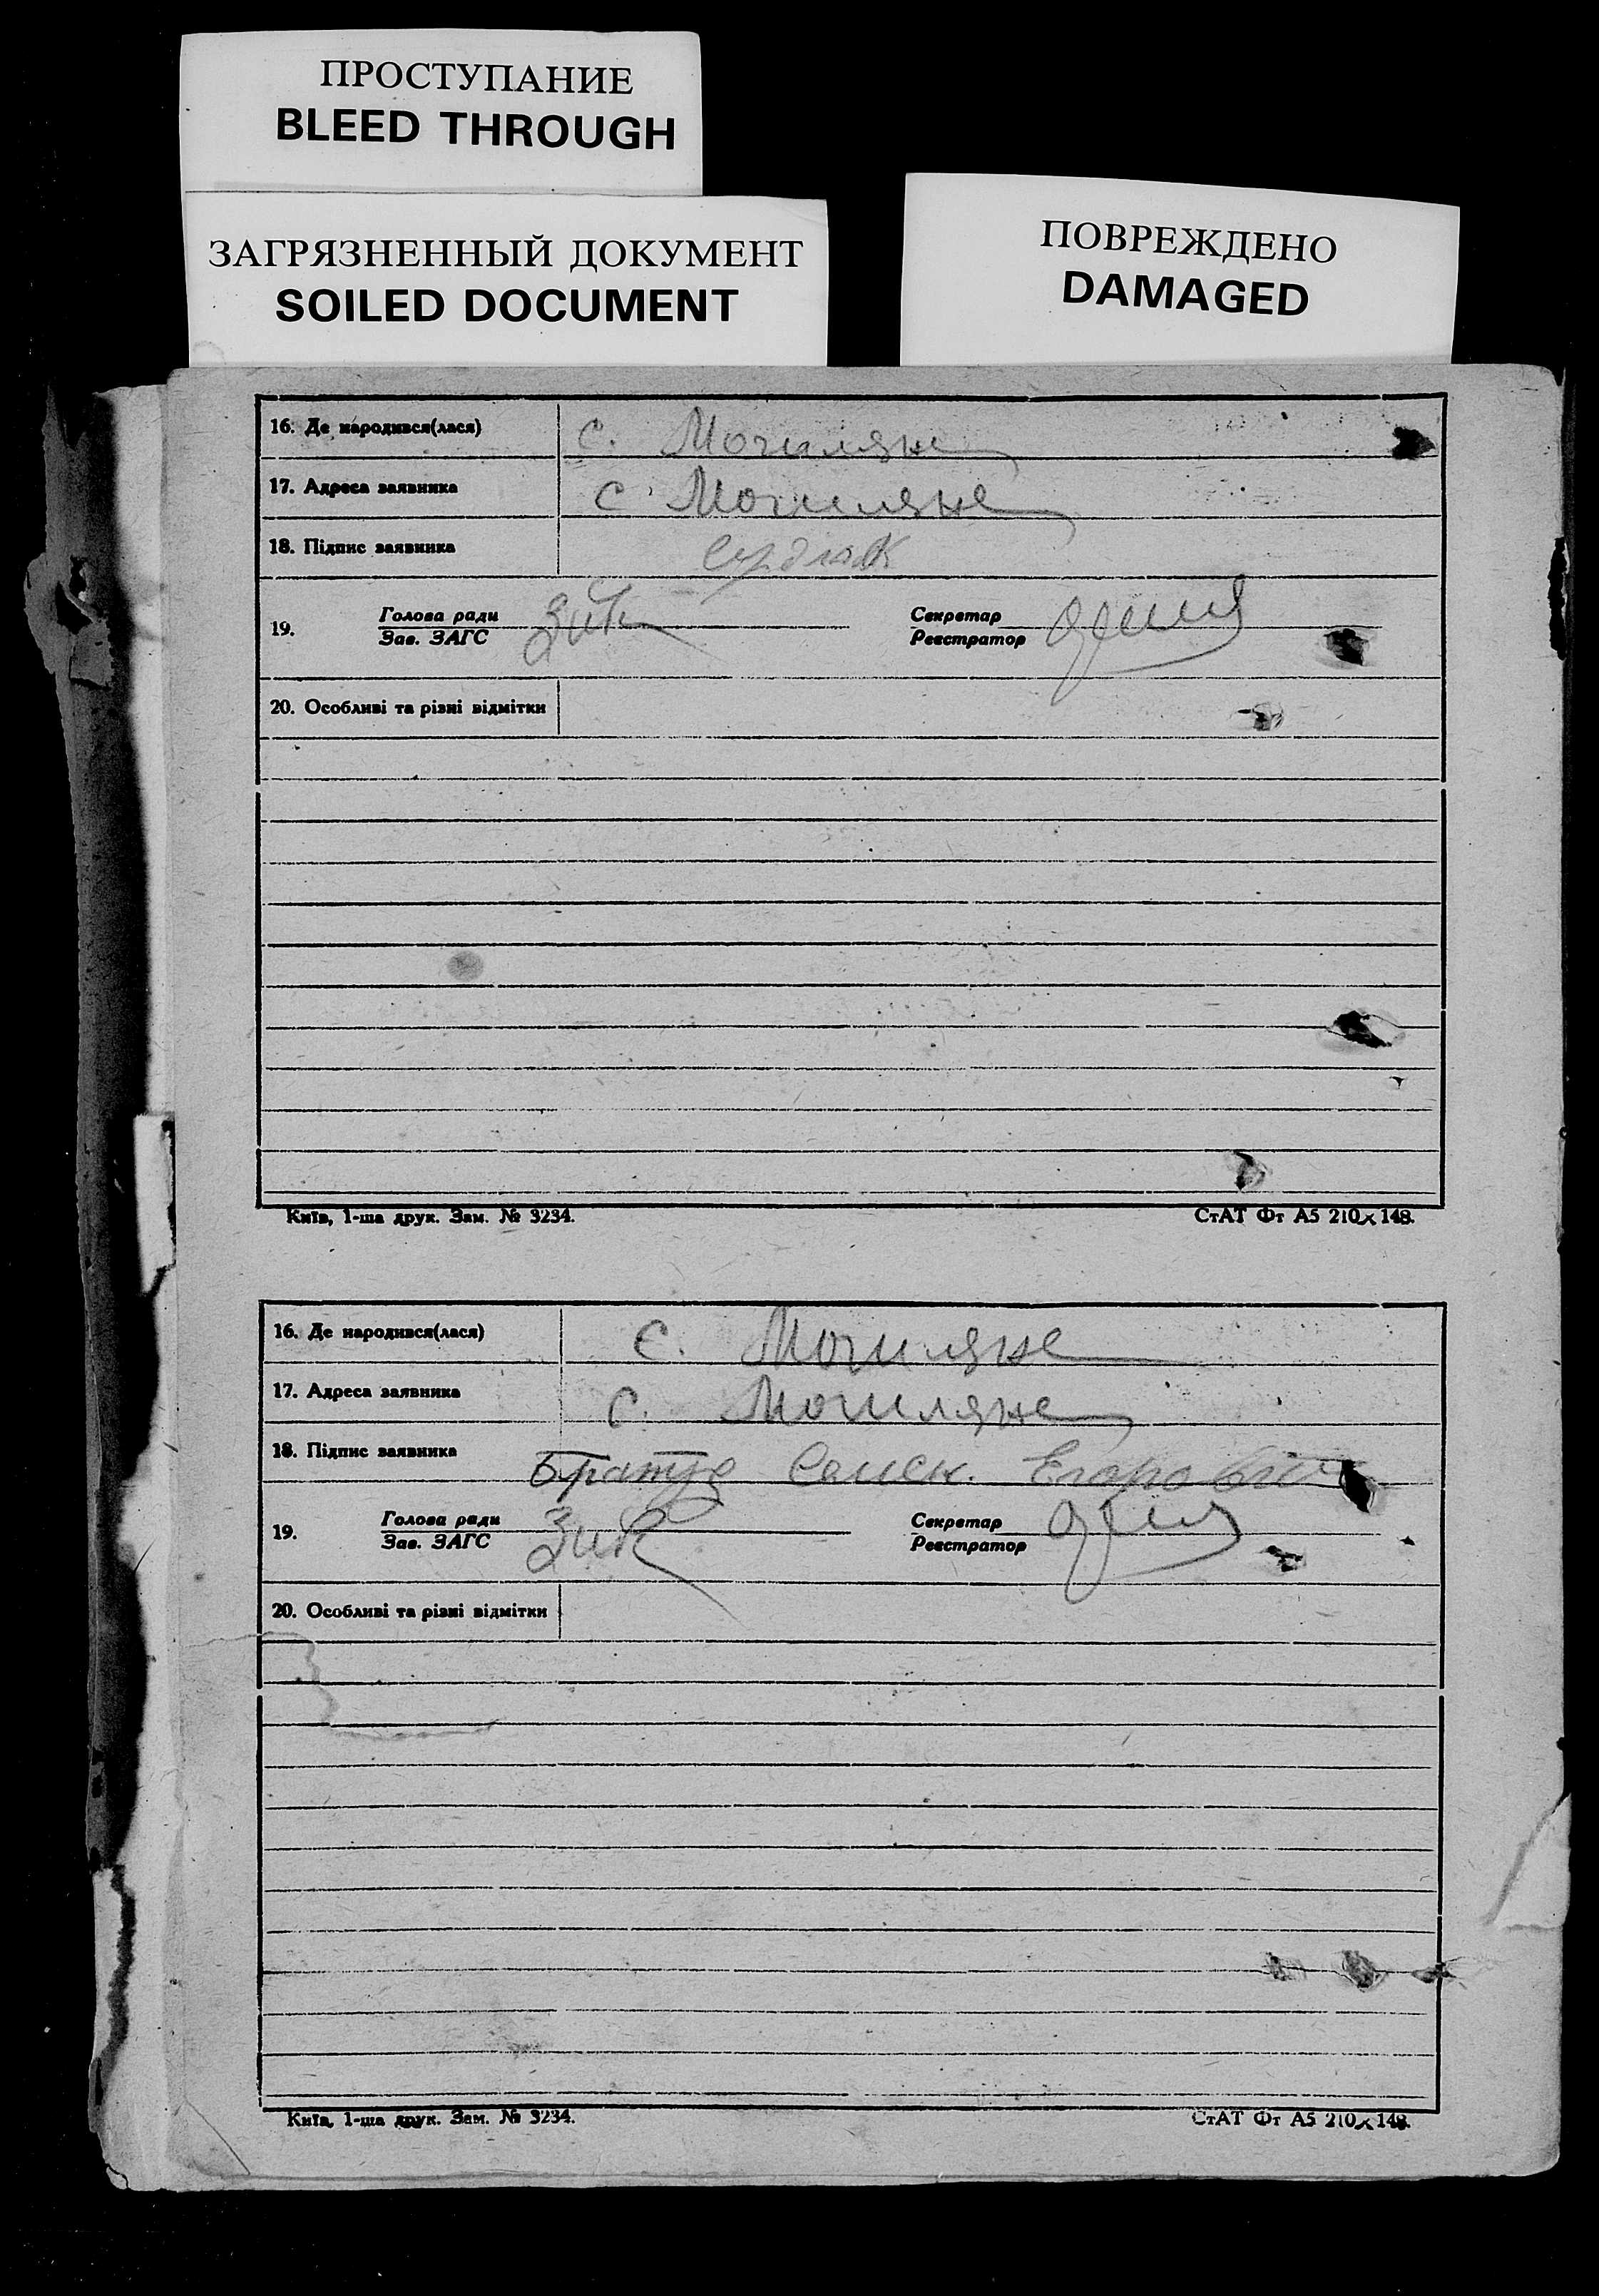 ПРОСТУПАНИЕ
BLEED THROUGH
ЗАГРЯЗНЕННЫЙ ДОКУМЕНТ
SOILED DOCUMENT
ПОВРЕЖДЕНО
DAMAGED
16. Де народився(лася) с. Могиляне
17. Адреса заявника с Могиляне
18. Підпис заявника Сердюк
19. Голова ради Секретар
Зав. ЗАГС Реєстратор
20. Особливі та різні відмітки
Київ, 1-ша друк. Зам. № 3234. СтАТ Фт А5 210×148.
16. Де народився(лася) с. Могиляне
17. Адреса заявника с. Могиляне
18. Підпис заявника Братус Егорович
19. Голова ради Секретар
Зав. ЗАГС Реєстратор
20. Особливі та різні відмітки
Київ, 1-ша друк. Зам. № 3234. СтАТ Фт А5 210×148.